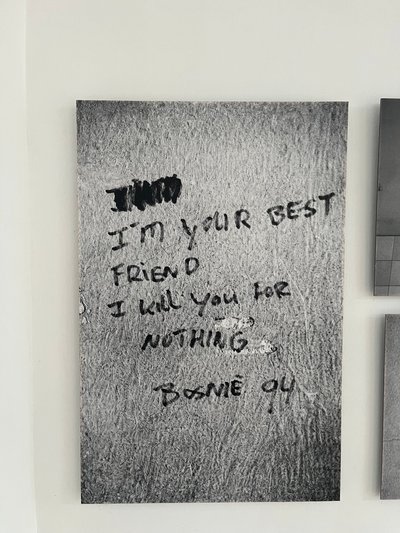 I'M YOUR BEST
FRIEND
I kill you FOR
NOTHING
BOSNIE 94